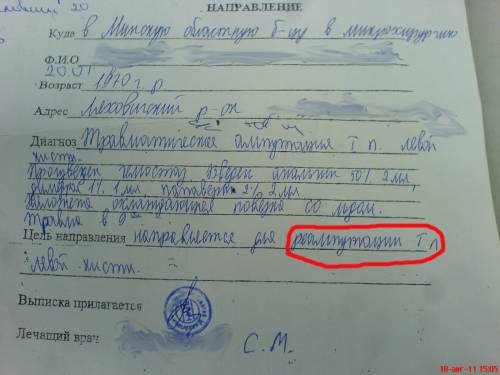 НАПРАВЛЕНИЕ
Куда в Минскую областную б-цу в микрохирургию
Ф.И.О
2001
Возраст 1970 г.р
Адрес Ляховичский р-он
Диагноз Травматическая ампутация I п. левой
кисти.
Произведен гемостаз. Введен анальгин 50% 2 мл,
димедрол 1% 1 мл, папаверин 2% 2 мл,
наложена охлаждающая повязка со льдом.
Травма в 9
Цель направления направляется для реампутации I п
левой кисти.
Выписка прилагается
Лечащий врач С.М.
18-авг-11 15:05